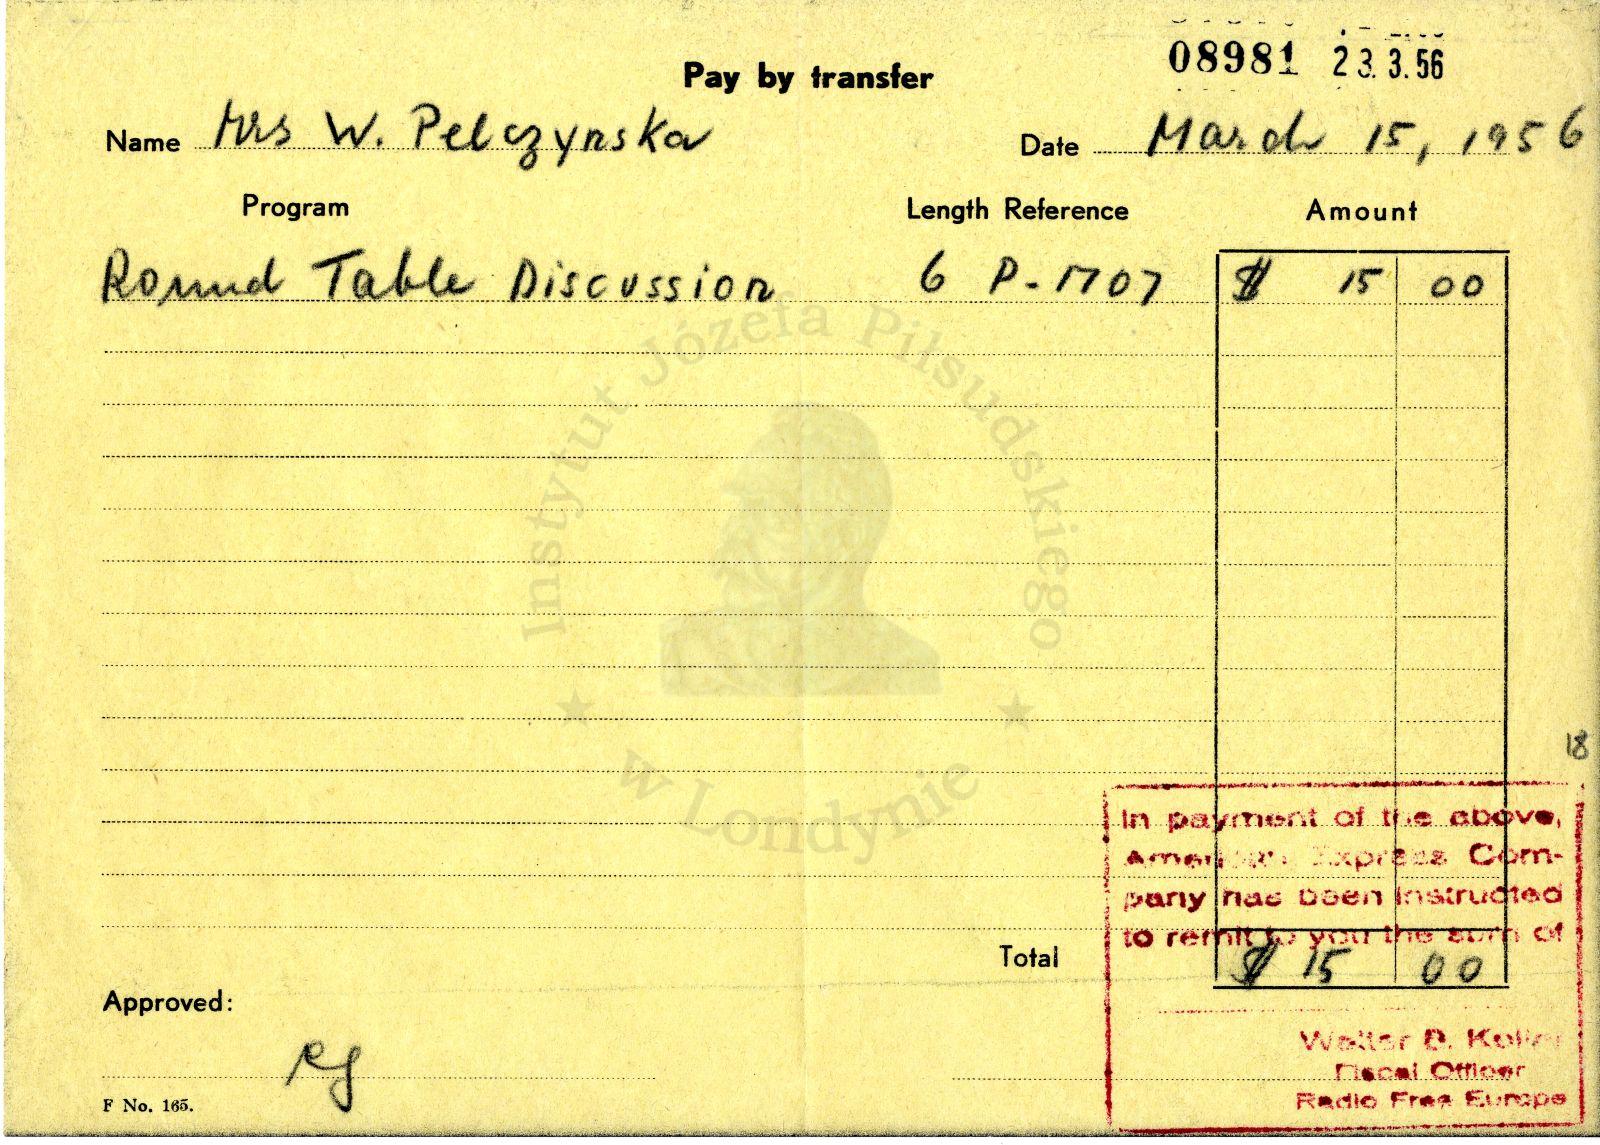 08981 23.3.56
Pay by transfer
Name Mrs W. Pelczynska Date March 15, 1956
Program Length Reference Amount
Round Table Discussion 6 P-1707 $ 15 00
Instytut Józefa Piłsudskiego
w Londynie
18
In payment of the above,
American Express Com-
pany has been instructed
to remit to you the sum of
Total $ 15 00
Approved:
Walter B.
Fiscal Officer
Radio Free Europe
F No. 165.